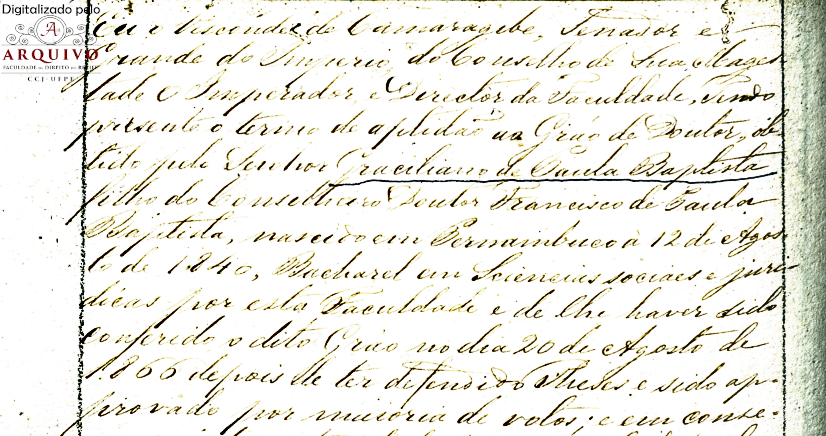 Digitalizado pelo
A
ARQUIVO
FACULDADE DE DIREITO DO RECIFE
CCJ-UFPE
Eu o Visconde de Camaragibe, Senador e
Grande do Imperio do Conselho de Sua Mages
tade o Imperador, e Director da Faculdade, Tendo
presente o termo de aptidão ao Gráo de Doutor, ob
tido pelo Senhor Graciliano de Paula Baptista
filho do Conselheiro Doutor Francisco de Paula
Baptista, nascido em Pernambuco à 12 de Agos
to de 1840, Bacharel em Sciencias sociaes e juri
dicas por esta Faculdade e de lhe haver sido
conferido o dito Gráo no dia 20 de Agosto de
1866 depois de ter defendido Theses e sido ap-
provado por maioria de votos; e em conse-